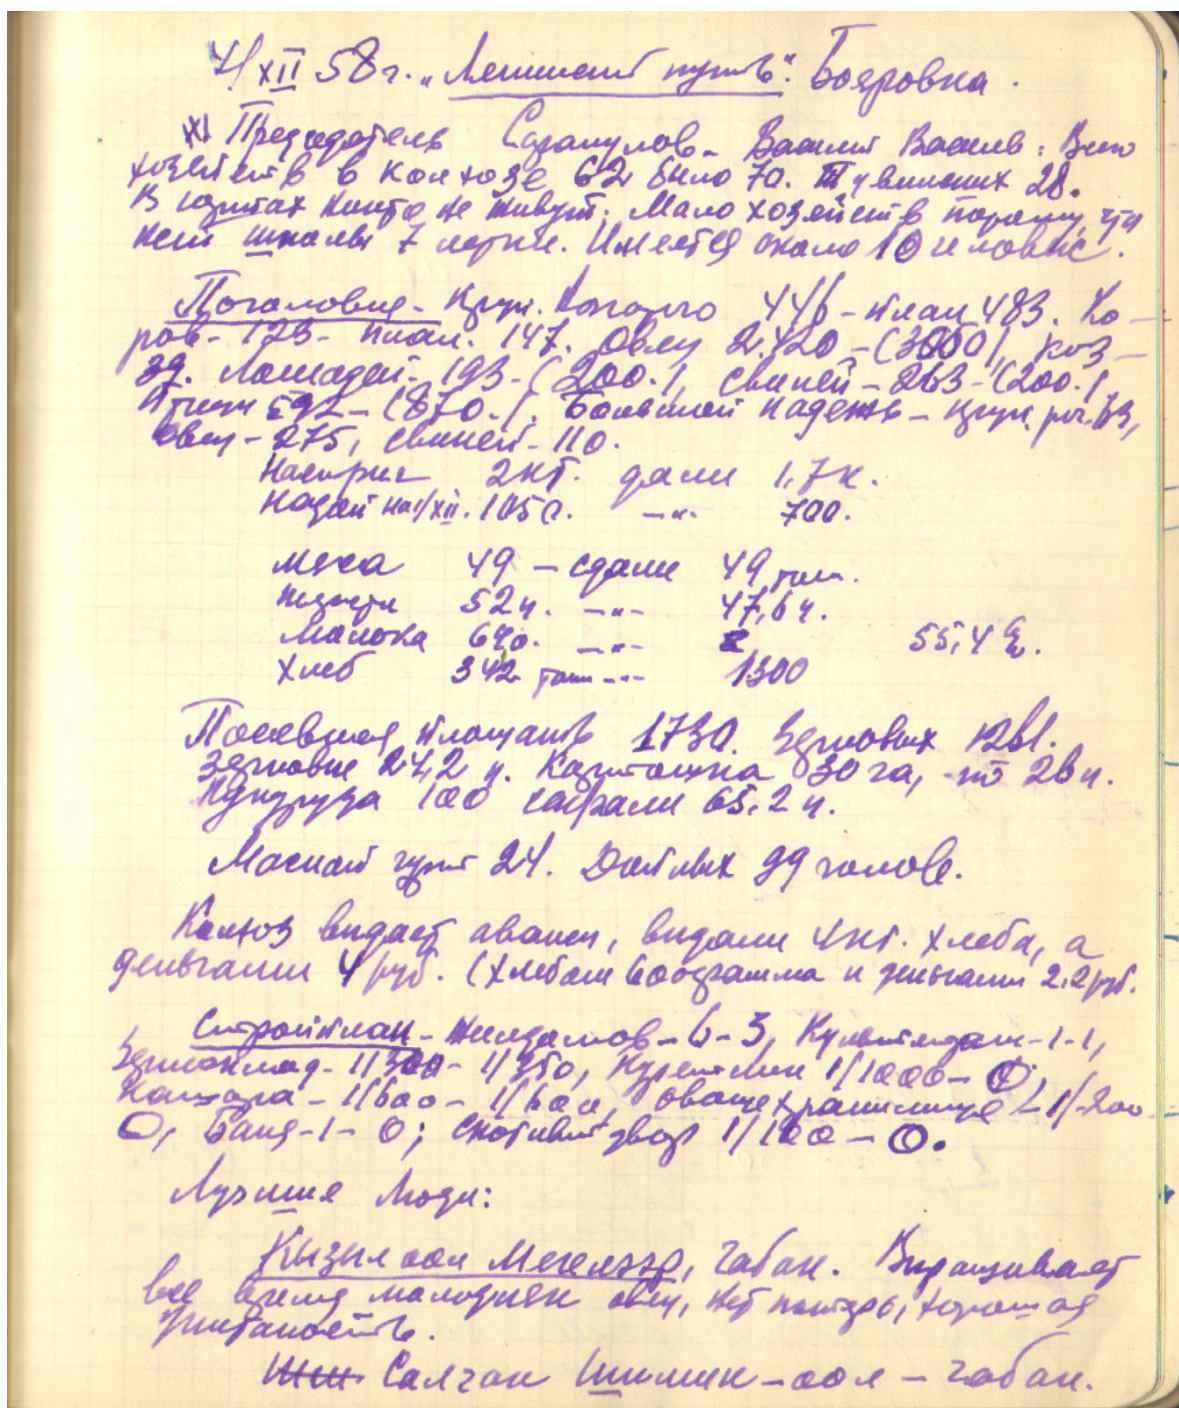 7/XII 58 г. „Ленинский путь“. Бояровка.
Председатель Сарапулов Василий Васильев: Всего
хозяйств в колхозе 62 было 70. Тувинских 28.
В юртах никто не живут. Мало хозяйств потому, что
нет школы 7 летки. Имеется около 10 человек.
Поголовье - Круп. рогатого 446 - план 483. Ко-
ров - 123 - план. 147. Овец 2.420 - (3000), коз -
39. Лошадей - 193 - (200.), свиней - 263 - (200.),
Птицы 592 - (870.). Большой падеж - круп. рог. 63,
овец - 275, свиней - 110.
Настриг 2 кг. дали 1,7 к.
Надой на 1/XII. 1050. -"- 700.
мяса 49 - сдали 49 тон.
шерсти 52 ц. -"- 47,6 ц.
Молока 640. -"- 55,4 %.
хлеб 342 тон -"- 1300
Посевная площадь 1730. Зерновых 1261.
зерновые 24,2 ц. Картошка 30 га, по 26 ц.
Кукуруза 100 собрали 65,2 ц.
Маслый гурт 24. Дойных 99 голов.
Колхоз видает аванси, видали 4 кг. хлеба, а
деньгами 4 руб. (хлебом 600 грамма и деньгами 2.2 руб.
Стройплан - Жилдомов - 6 - 3, Культстан - 1 - 1,
Зерносклад - 1/300 - 1/350, Курятник 1/1000 - 0,
Кошара - 1/600 - 1/600, овощехранилище - 1/200 -
0, Баня - 1 - 0; скотный двор 1/100 - 0.
Лучшие люди:
Кызыл оол Мегелээр, чабан. Виращивает
все время молодняк овец, нет потерь, хорошая
упитаность.
Салчак Шимик-оол - чабан.